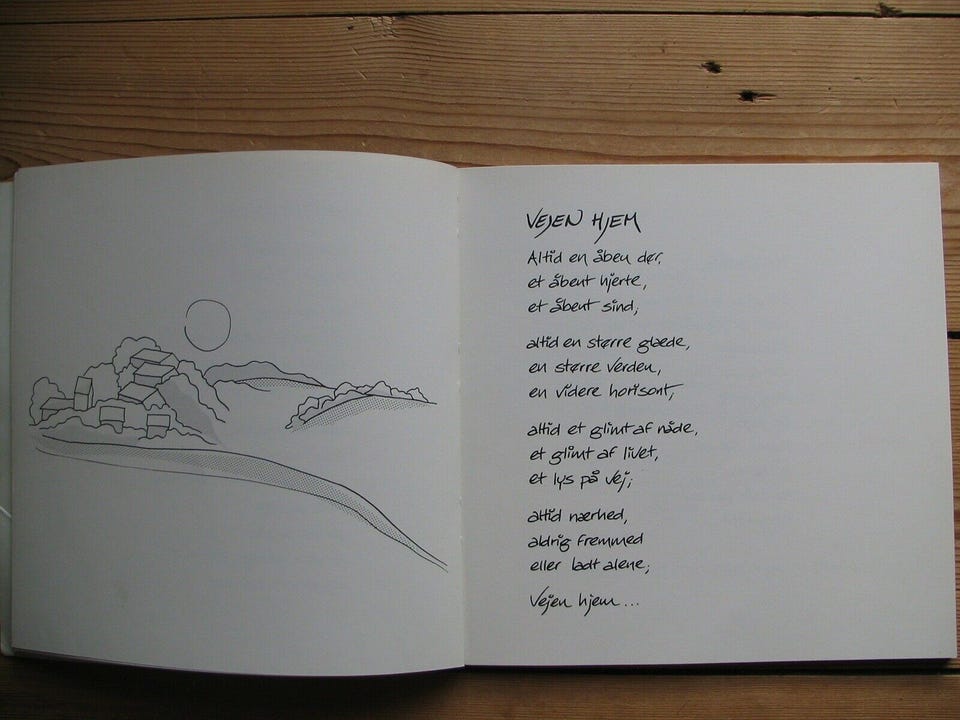 VEJEN HJEM
Altid en åben dør,
et åbent hjerte,
et åbent sind;
altid en større glæde,
en større verden,
en videre horisont;
altid et glimt af nåde,
et glimt af livet,
et lys på vej;
altid nærhed,
aldrig fremmed
eller ladt alene;
Vejen hjem...